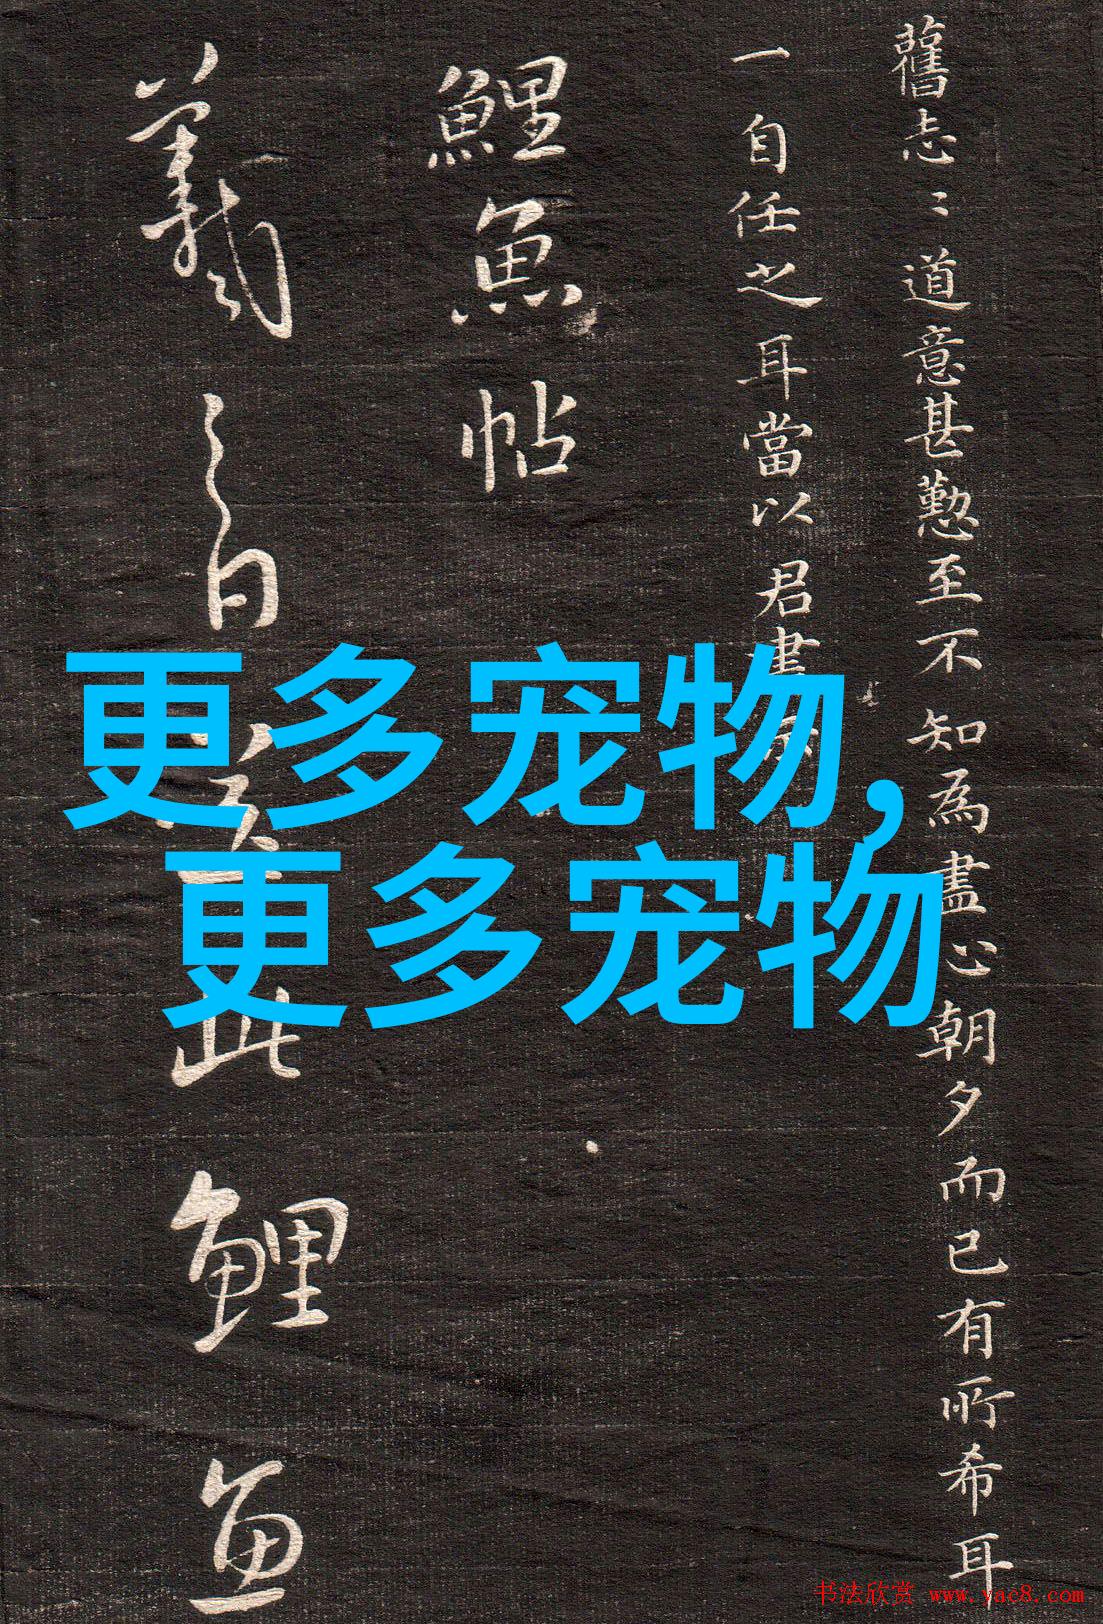 舊志〻道意甚懃至不知為盡心朝夕而已有所希耳
一自任之耳當以君書
鯉魚帖
羲之白
此鯉魚
更多宠物,
更多宠物
书法欣赏 www.yac8.com